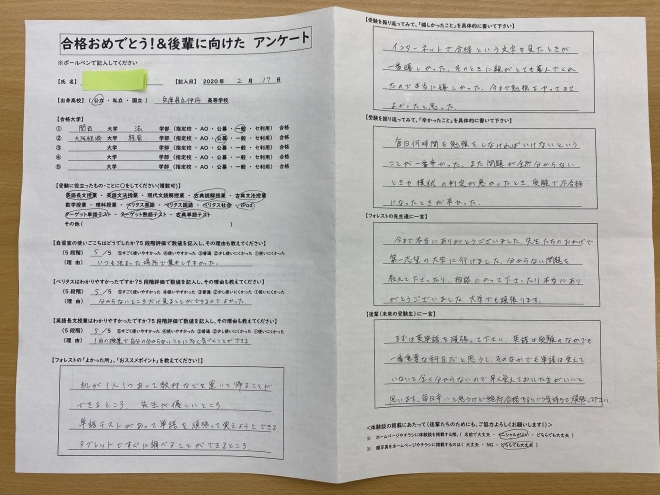 合格おめでとう！&後輩に向けた アンケート
※ボールペンで記入してください
【氏 名】
【記入日】 2020年 2月 17日
【出身高校】（公立・私立・国立） 兵庫県立伊丹 高等学校
【合格大学】
① 関西 大学 法 学部（指定校・AO・公募・一般・セ利用）合格
② 大阪経済 大学 経営 学部（指定校・AO・公募・一般・セ利用）合格
③ 大学 学部（指定校・AO・公募・一般・セ利用）合格
④ 大学 学部（指定校・AO・公募・一般・セ利用）合格
⑤ 大学 学部（指定校・AO・公募・一般・セ利用）合格
【受験に役立ったもの・ことに○をしてください(複数可)】
英語長文授業・英語文法授業・現代文読解授業・古典読解授業・古典文法授業
数学授業・理科授業・ベリタス英語・ベリタス国語・ベリタス社会・iPod
ターゲット単語テスト・ターゲット熟語テスト・古典単語テスト
その他（ ）
【自習室の使いごこちはどうでしたか？5段階評価で数値を記入し、その理由も教えてください】
（5段階） 5／5 ⑤すごく使いやすかった ④使いやすかった ③普通 ②少し使いにくかった ①使いにくかった
（理由） いつも決まった場所で集中しやすかった。
【ベリタスはわかりやすかったですか？5段階評価で数値を記入し、その理由も教えてください】
（5段階） 5／5
（理由） 分からないところだけ見ることができるのでよかった。
【英語長文授業はわかりやすかったですか？5段階評価で数値を記入し、その理由も教えてください】
（5段階） 5／5
（理由） 1回の授業で自分の分からないことに多く気づくことができる
【フォレストの「よかった所」、「おススメポイント」を教えてください！】
机が1人1つあって教材などを置いて帰ることが
できるところ 先生が優しいところ
単語テストがあって単語を頑張って覚えようとできる
タブレットですぐに調べることができるところ
【受験を振り返ってみて、「嬉しかったこと」を具体的に書いて下さい】
インターネットで合格という文字を見たときが
一番嬉しかった。そのときに親がとても喜んでくれ
たので本当に嬉しかった。今まで勉強をやってきて
よかったと思った。
【受験を振り返ってみて、「辛かったこと」を具体的に書いて下さい】
毎日何時間も勉強をしなければいけないという
ことが一番辛かった。また問題が全然分からない
ときや模試の判定が悪かったとき、受験で不合格
になったときが辛かった。
【フォレストの先生達に一言】
今まで本当にありがとうございました。先生たちのおかげで
第一志望の大学に行けました。分からない問題を
教えて下さったり、相談にのって下さったり本当にあり
がとうございました。大学でも頑張ります。
【後輩(未来の受験生)に一言】
まずは英単語を頑張って下さい。英語は受験のなかでも
一番重要な科目だと思うし、そのなかでも単語は覚えて
いないと全く分からないので早く覚えておいた方がいいと
思います。毎日辛いと思うけど絶対合格するという気持ちで頑張って下さい
<体験談の掲載にあたって(後輩たちのためにも、ご協力よろしくお願いします！)>
※ ホームページやチラシに体験談を掲載する際、（ 名前で大丈夫 ・ イニシャルがよい ・ どちらでも大丈夫 ）
※ 顔写真をホームページやチラシに掲載するのは（ 大丈夫 ・ NG ・ どちらでも大丈夫 ）